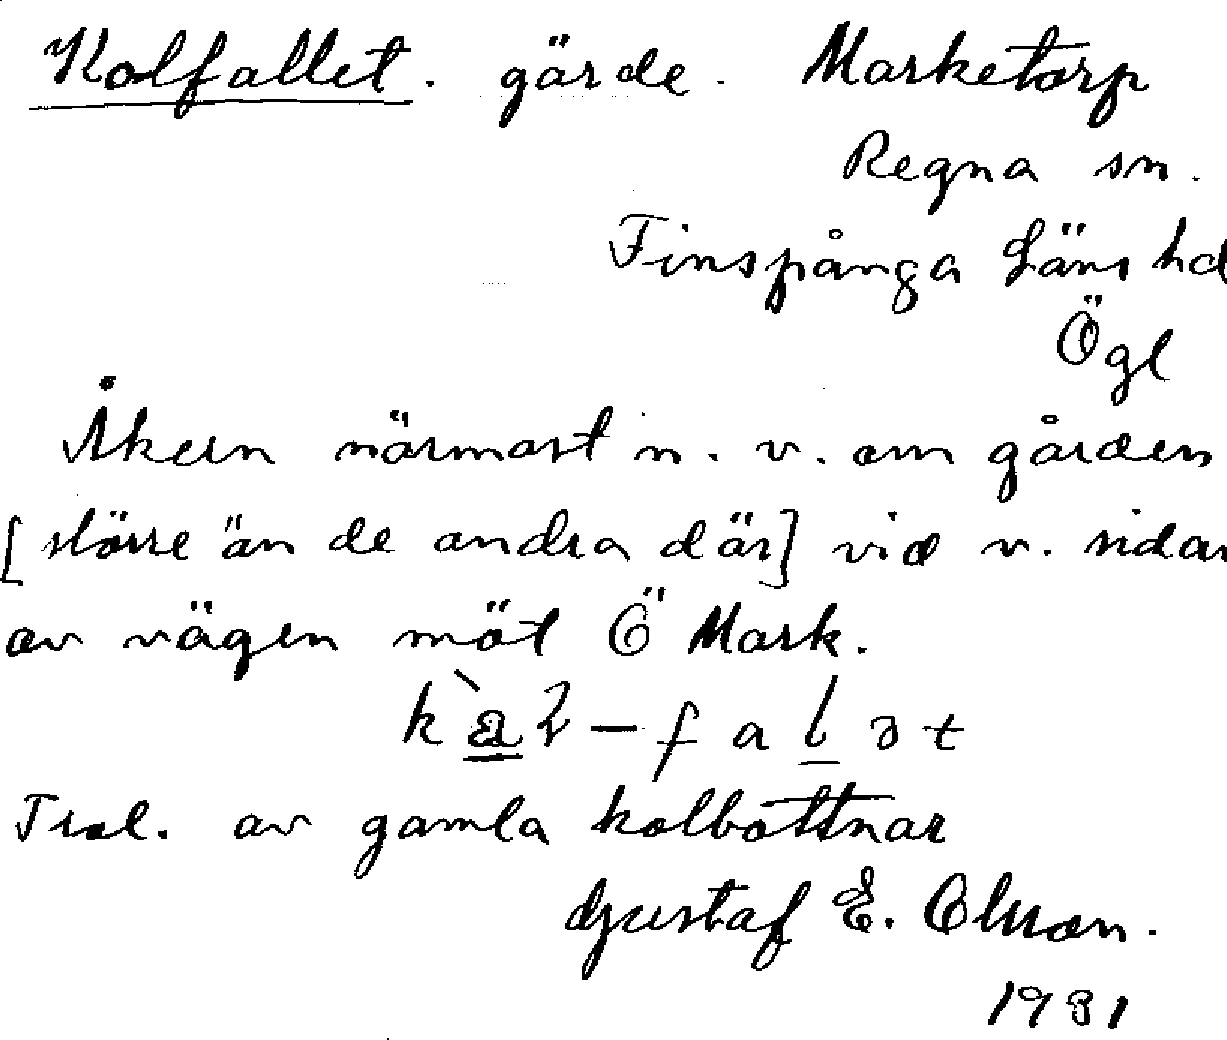 Kolfallet. gärde. Marketorp
Regna sn.
Finspånga Läns hd
Ögl
Åkern närmast n. v. om gården
[större än de andra där] vid v. sidan
av vägen möt Ö Mark.
Trol. av gamla kolbottnar
Gustaf E. Olsson.
1931